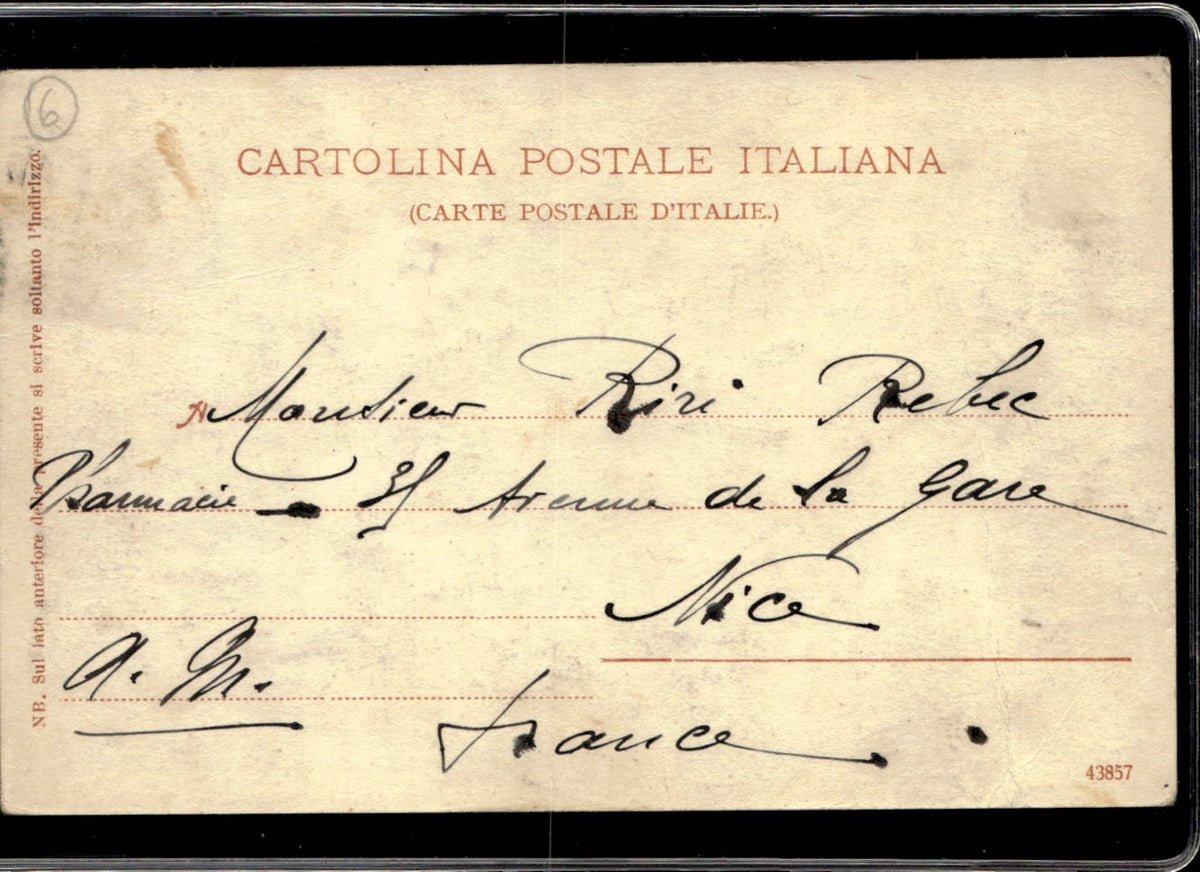 6
CARTOLINA POSTALE ITALIANA
(CARTE POSTALE D'ITALIE.)
NB. Sul lato anteriore della presente si scrive soltanto l'indirizzo.
A Monsieur Riri Rebec
Pharmacie — Avenue de la Gare
Nice
A. M.
France
43857